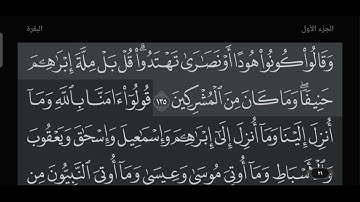 الجزء الأول البقرة
وَقَالُوا۟ كُونُوا۟ هُودًا أَوْ نَصَٰرَىٰ تَهْتَدُوا۟ ۗ قُلْ بَلْ مِلَّةَ إِبْرَٰهِـۧمَ
حَنِيفًا ۖ وَمَا كَانَ مِنَ ٱلْمُشْرِكِينَ ١٣٥ قُولُوٓا۟ ءَامَنَّا بِٱللَّهِ وَمَآ
أُنزِلَ إِلَيْنَا وَمَآ أُنزِلَ إِلَىٰٓ إِبْرَٰهِـۧمَ وَإِسْمَٰعِيلَ وَإِسْحَٰقَ وَيَعْقُوبَ
وَٱلْأَسْبَاطِ وَمَآ أُوتِىَ مُوسَىٰ وَعِيسَىٰ وَمَآ أُوتِىَ ٱلنَّبِيُّونَ مِن
٢١